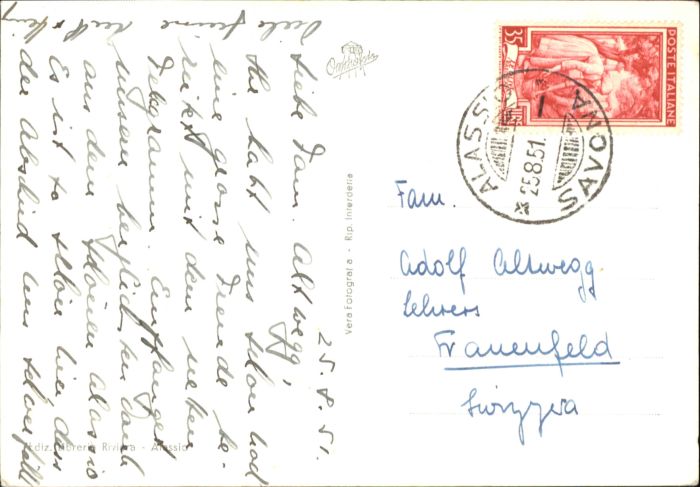 25.8.51.
Liebe Fam. Altwegg,
Ihr habt uns schon
eine grosse Freude be-
reitet mit dem netten
Telegramm. Empfanget
unseren herzlichsten Dank
aus dem schönen Alassio
Es ist so schön hier dass
der Abschied uns schwerfällt
Viele
Ediz. Libreria Riviera - Alassio
Vera Fotografia - Rip. Interdette
POSTE ITALIANE
35
ALASSIO
25.8.51.
SAVONA
Fam.
Adolf Altwegg
Lehrers
Frauenfeld
Svizzera